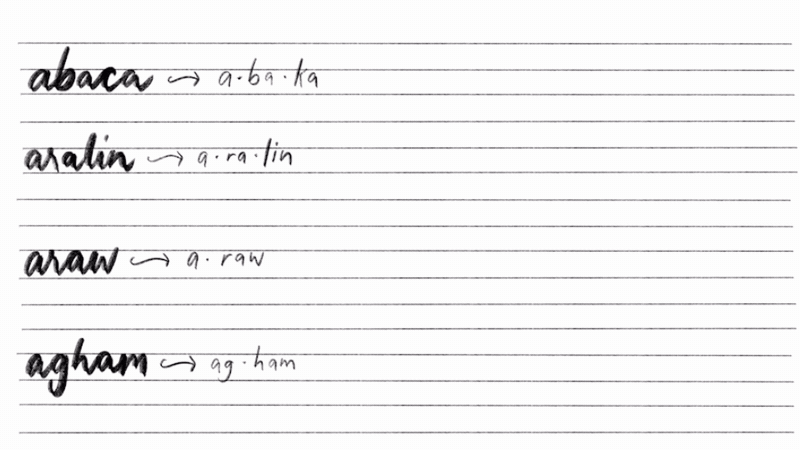 abaca → a·ba·ka
aralin → a·ra·lin
araw → a·raw
agham → ag·ham